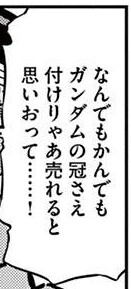 なんでもかんでも
ガンダムの冠さえ
付けりゃあ売れると
思いおって……!